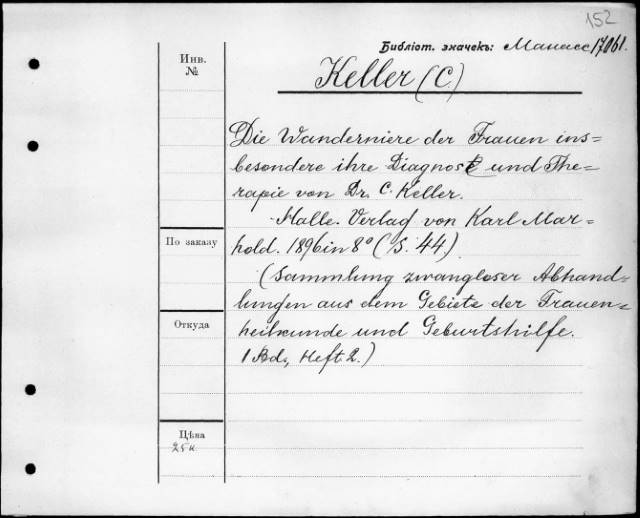 152
Библіот. значекъ: Манасс 17061.
Инв.
№
Keller (C.)
Die Wanderniere der Frauen ins=
besondere ihre Diagnose und The=
rapie von Dr. C. Keller.
Halle. Verlag von Karl Mar=
По заказу
hold. 1896 in 8° (S. 44.)
(Sammlung zwangloser Abhand=
lungen aus dem Gebiete der Frauen=
Откуда
heilkunde und Geburtshilfe.
1 Bd, Heft 2.)
Цѣна
25 к